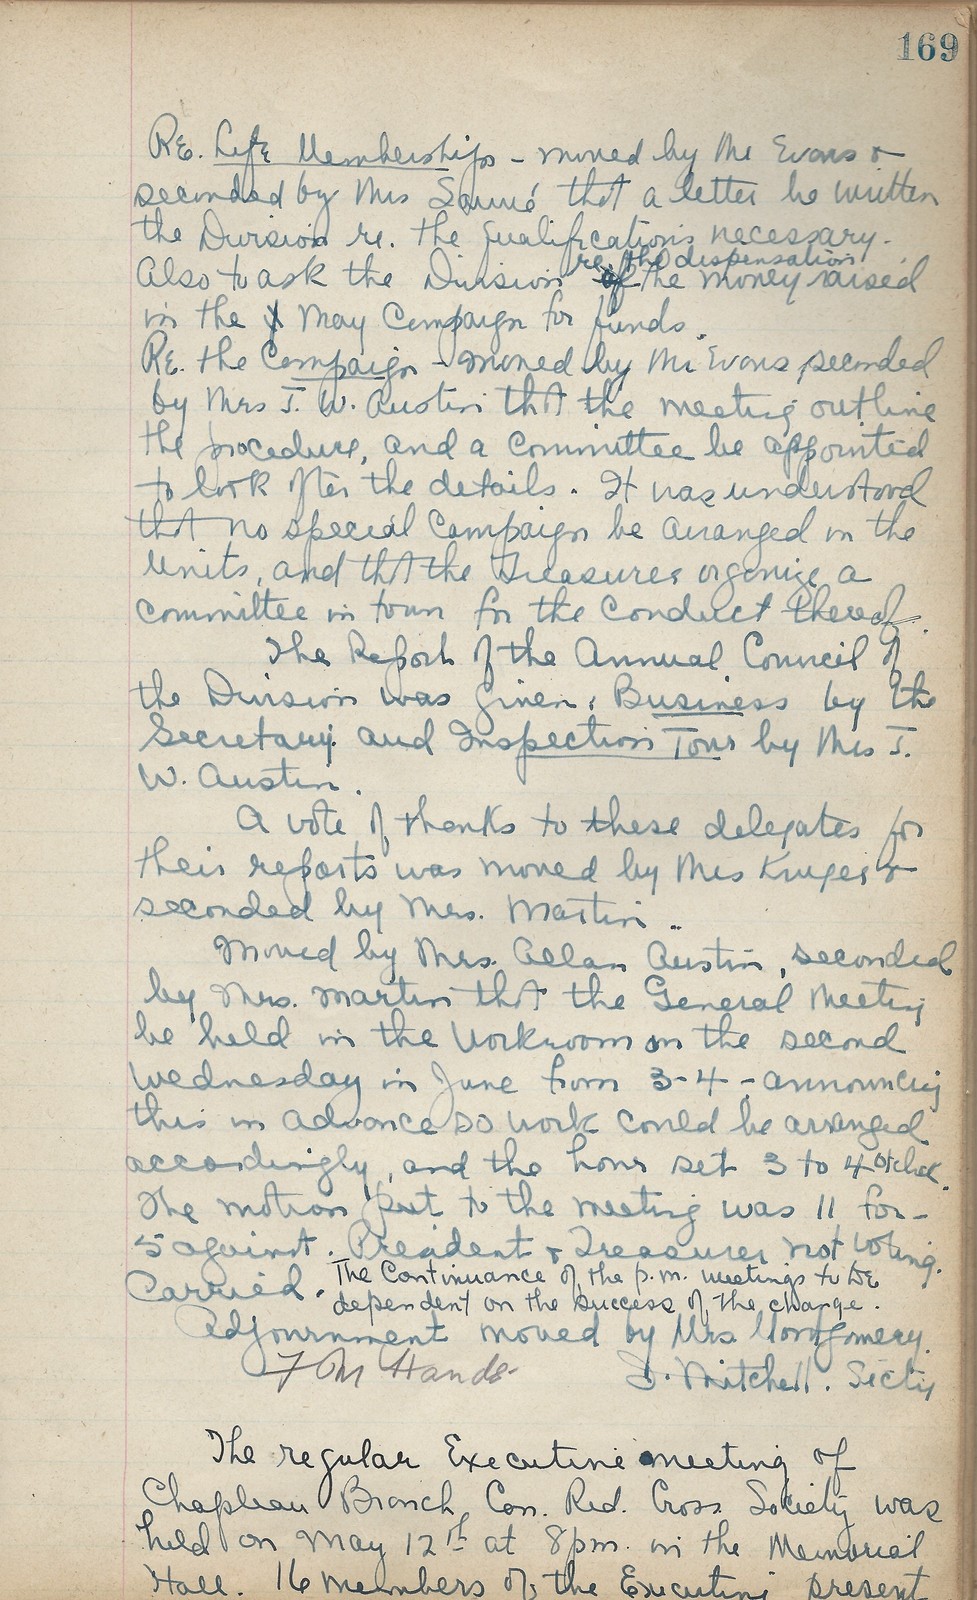 169
RE. Life Memberships - moved by Mr Evans &
seconded by Mrs that a letter be written
the Division re. the qualifications necessary.
re. the dispensation
Also to ask the Division of the money raised
in the May Campaign for funds.
RE. the Campaign - moved by Mr Evans, seconded
by Mrs J. W. Austin that the meeting outline
the procedure, and a committee be appointed
to look after the details. It was understood
that no special Campaign be arranged in the
Units, and that the Treasurer organize a
committee in town for the conduct thereof.
The Report of the Annual Council of
the Division was given, Business by the
Secretary and Inspection Tour by Mrs J.
W. Austin.
A vote of thanks to these delegates for
their reports was moved by Mrs Kruger &
seconded by Mrs. Martin.
Moved by Mrs. Allan Austin, seconded
by Mrs. Martin that the General Meeting
be held in the Workroom on the second
Wednesday in June from 3-4 - announcing
this in advance so work could be arranged
accordingly, and the hour set 3 to 4 o'clock.
The motion put to the meeting was 11 for -
5 against. President & Treasurer not voting.
Carried. The Continuance of the p.m. meetings to be
dependent on the success of the change.
Adjournment moved by Mrs Montgomery.
F M Hands D. Mitchell. Sec'ty
The regular Executive meeting of
Chapleau Branch, Can. Red. Cross Society was
held on May 12th at 8 p.m. in the Memorial
Hall. 16 members of the Executive present